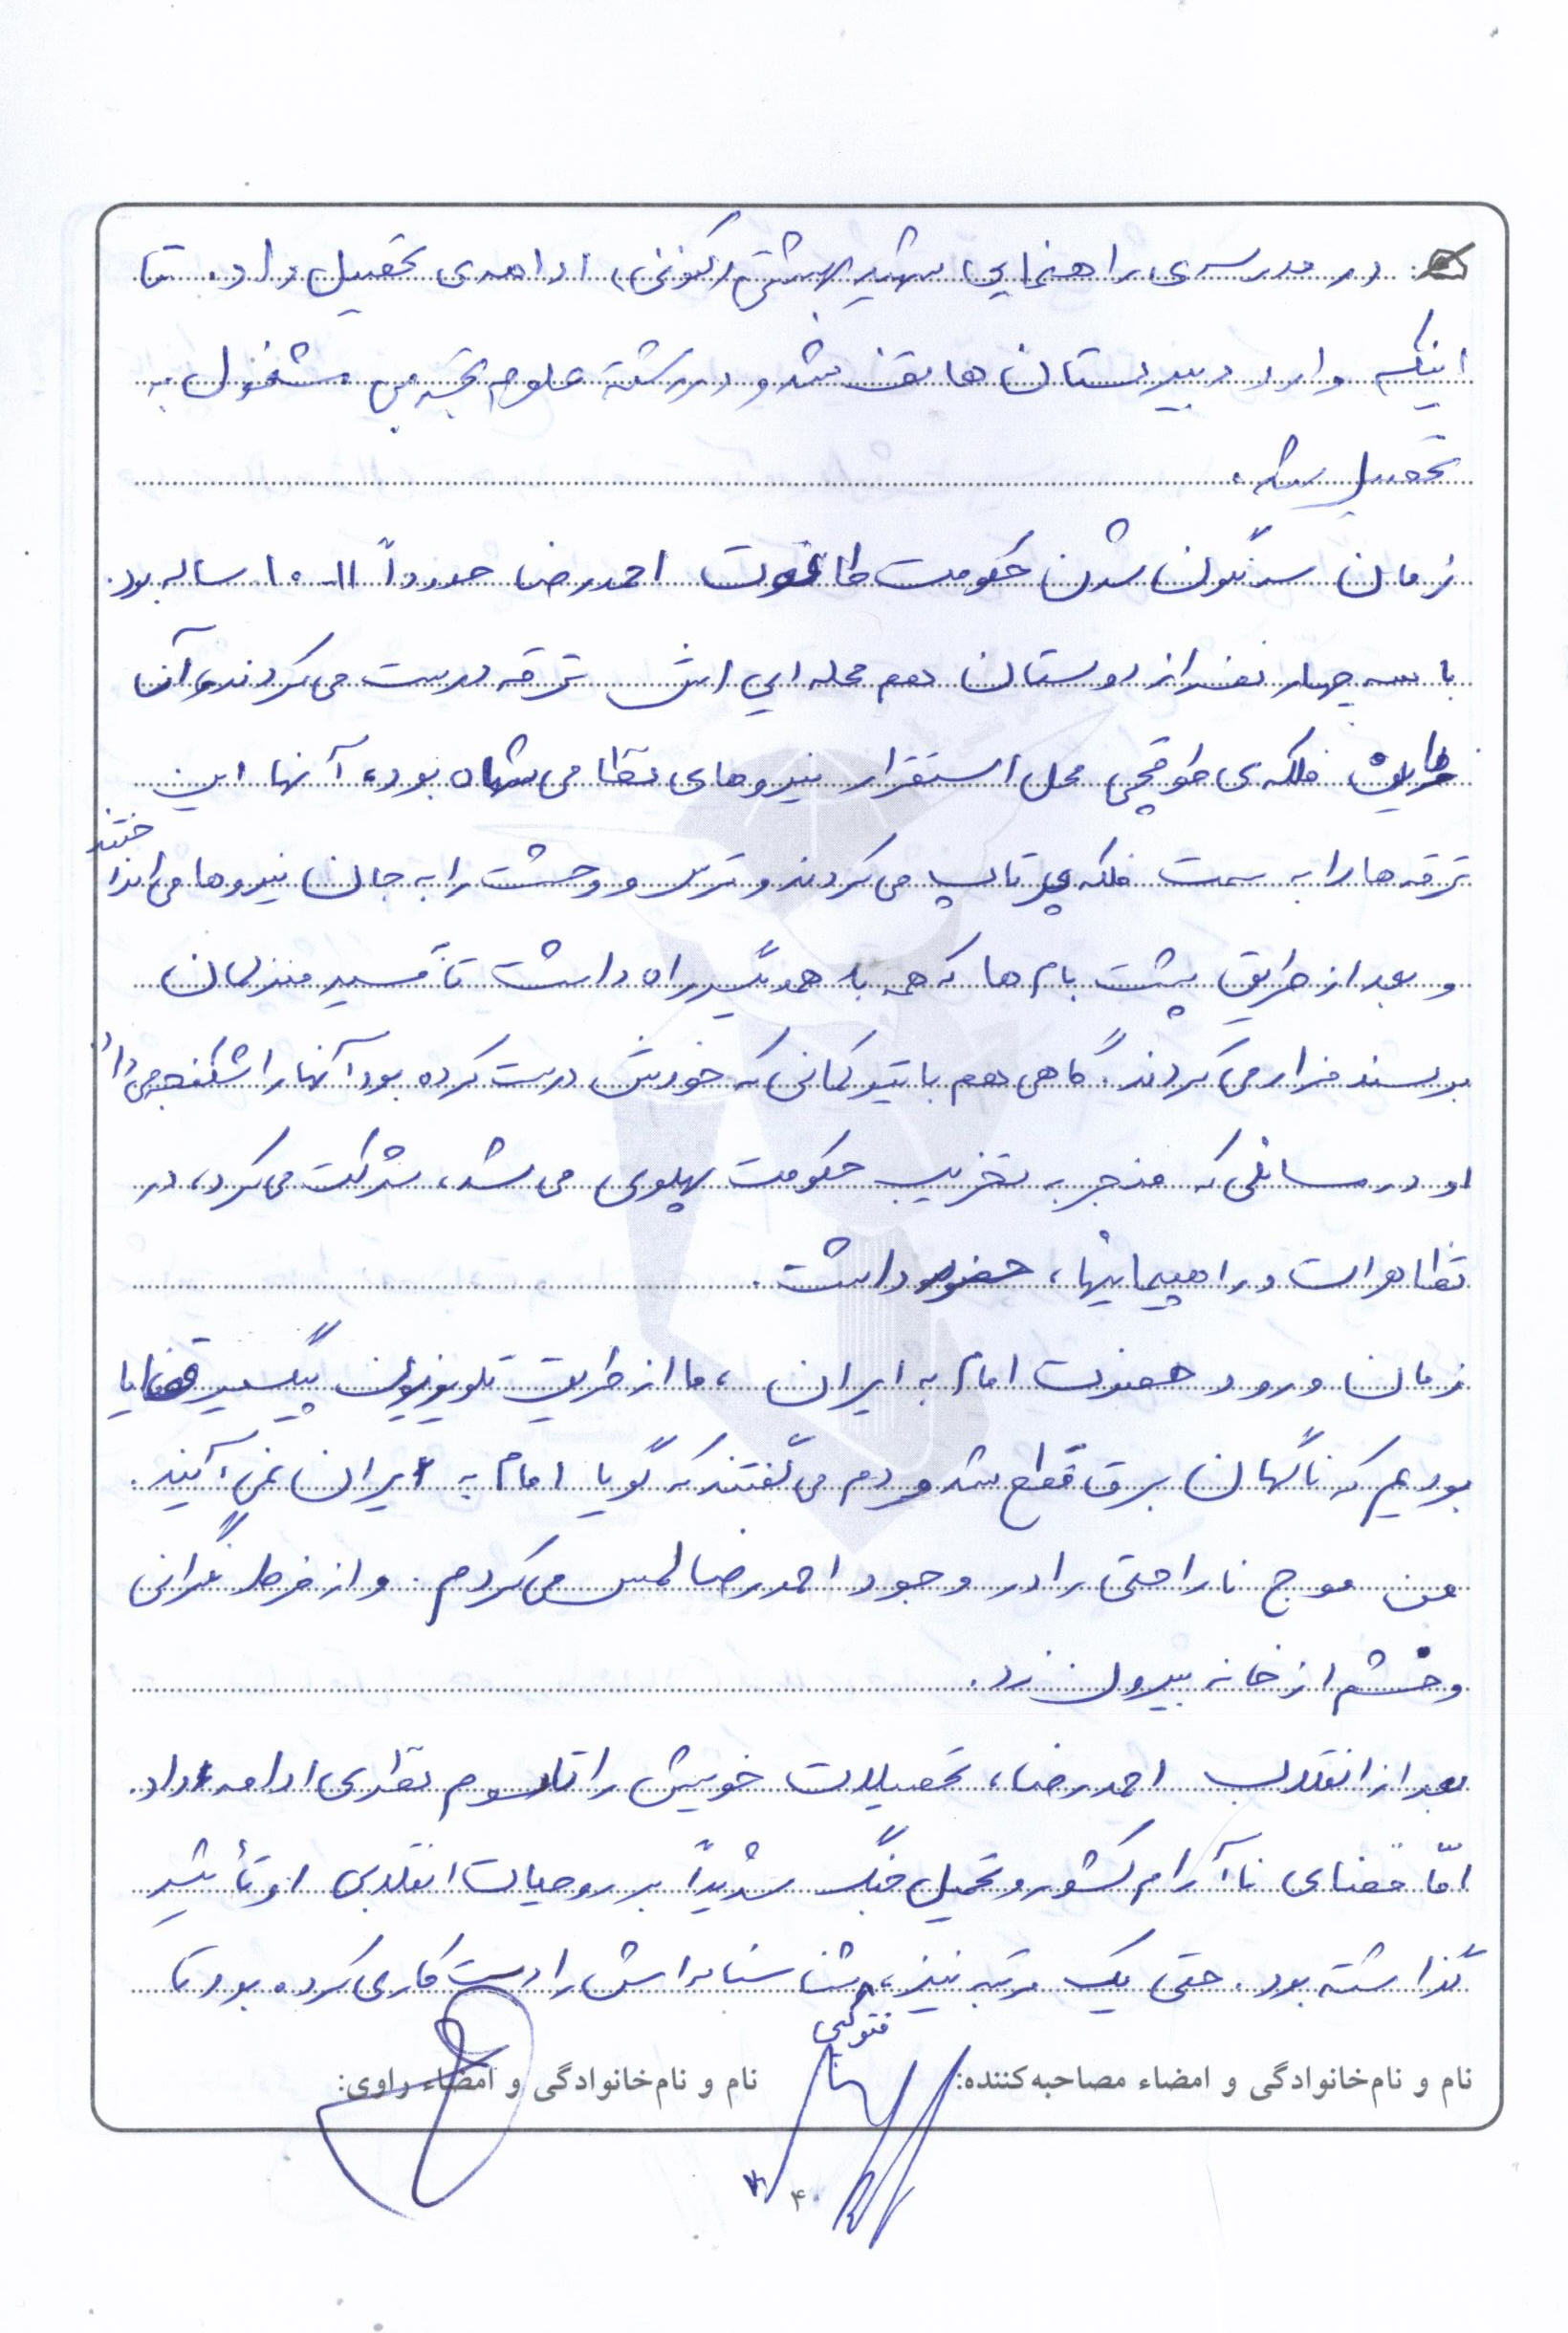 در مدرسه‌ی راهنمایی شهید بهشتی (کنونی) ادامه‌ی تحصیل داد. تا
اینکه وارد دبیرستان هاتف شد و در رشته علوم تجربی مشغول به
تحصیل شد.
زمان سرنگون شدن حکومت طاغوت احمدرضا حدوداً ۱۱-۱۰ ساله بود.
با سه چهار نفر از دوستان هم محله‌ای اش ترقه درست می‌کردند و آن
فلکه‌ی طوقچی محل استقرار نیروهای نظامی شاه بود، آنها این
ترقه ها را به سمت فلکه پرتاب می‌کردند و ترس و وحشت را به جان نیروها می‌انداختند
و بعد از طریق پشت بام ها که همه با همدیگر راه داشت تا مسیر منزلمان
برسند فرار می‌کردند. گاهی هم با تیرکمانی که خودش درست کرده بود آنها را شکنجه می‌داد.
او در مسائلی که منجر به تخریب حکومت پهلوی می‌شد، شرکت می‌کرد، در
تظاهرات و راهپیمائیها، حضور داشت.
زمان ورود حضرت امام به ایران، ما از طریق تلویزیون پیگیر قضایا
بودیم که ناگهان برق قطع شد مردم می‌گفتند که گویا امام به ایران نمی‌آیند.
من موج ناراحتی را در وجود احمدرضا لمس می‌کردم. و از فرط نگرانی
و خشم از خانه بیرون زد.
بعد از انقلاب احمدرضا، تحصیلات خویش را تا سوم نظری ادامه داد.
امّا فضای ناآرام کشور و تحمیل جنگ شدیداً بر روحیات انقلابی او تأثیر
گذاشته بود. حتی یک مرتبه نیز، فتوکپی شناسنامه‌اش را دست کاری کرده بود تا
نام و نام‌خانوادگی و امضاء مصاحبه‌کننده:
نام و نام‌خانوادگی و امضاء راوی:
۴۰